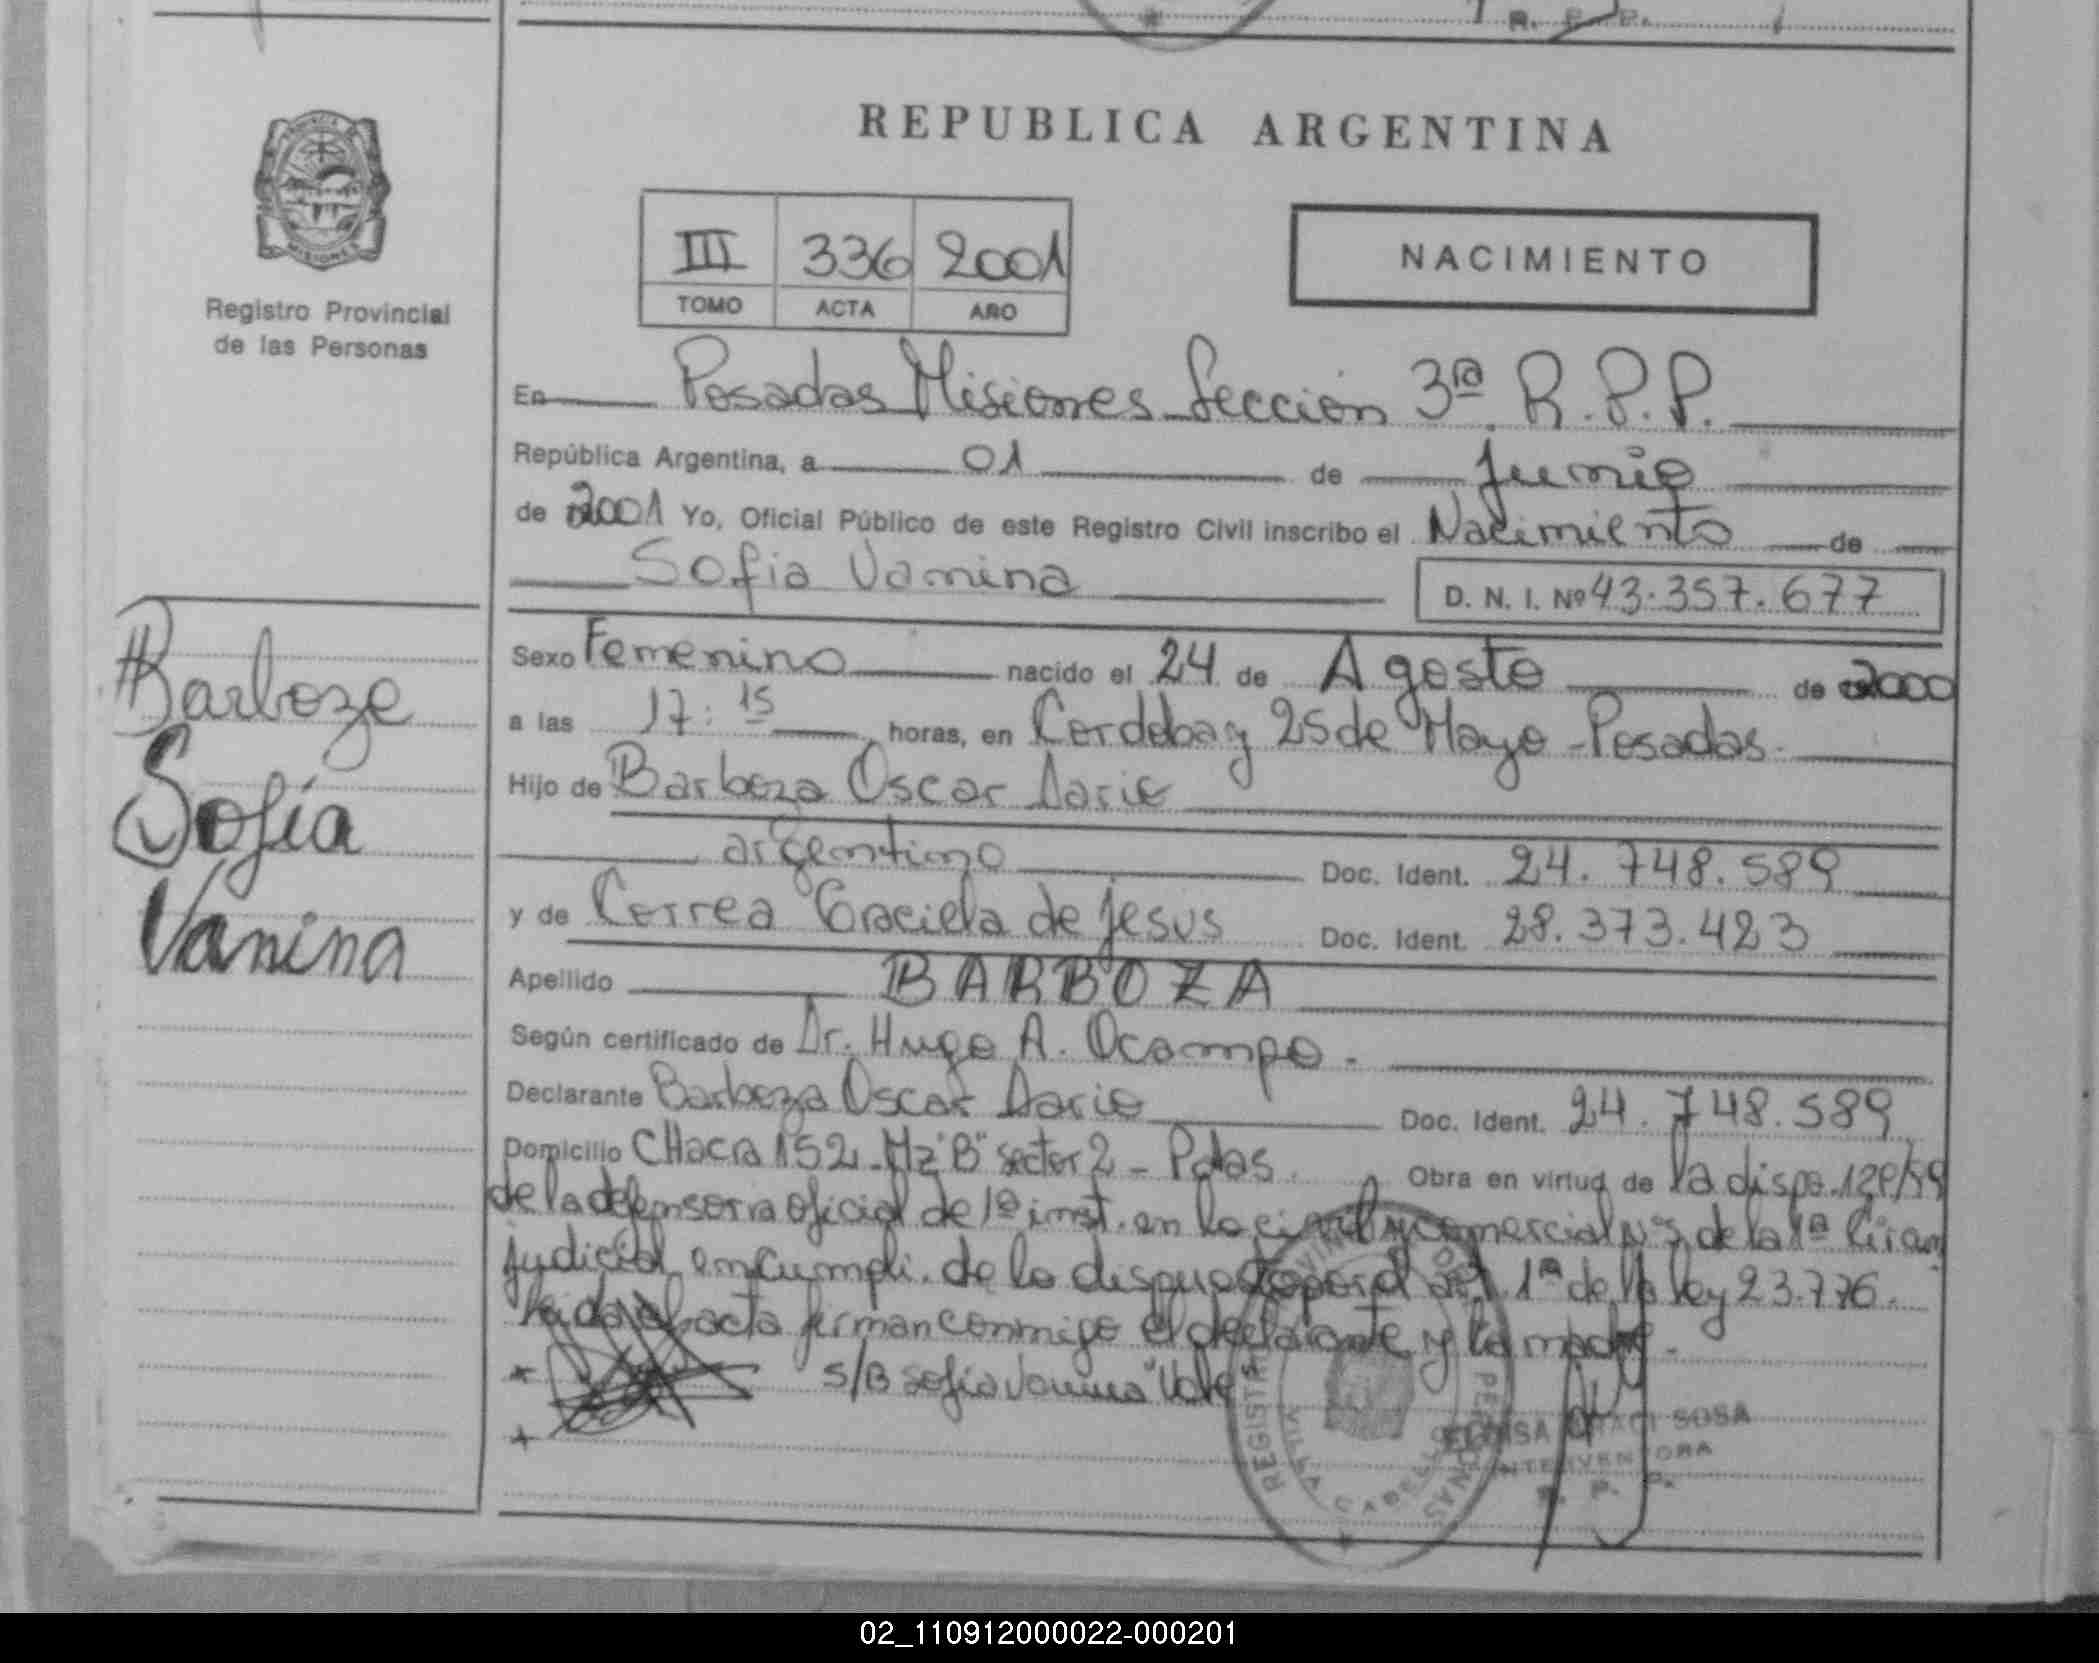 R. P. P.
REPUBLICA ARGENTINA
PROVINCIA DE
MISIONES
Registro Provincial
de las Personas
III 336 2001
TOMO ACTA AÑO
NACIMIENTO
En Posadas Misiones Sección 3ra R.P.P.
República Argentina, a 01 de Junio
de 2001 Yo, Oficial Público de este Registro Civil inscribo el Nacimiento de
Sofia Vanina D. N. I. Nº 43.357.677
Barboza
Sofía
Vanina
Sexo Femenino nacido el 24 de Agosto de 2000
a las 17:15 horas, en Cordoba y 25 de Mayo - Posadas.
Hijo de Barboza Oscar Dario
argentino Doc. Ident. 24.748.589
y de Correa Graciela de Jesus Doc. Ident. 28.373.423
Apellido BARBOZA
Según certificado de Dr. Hugo A. Ocampo.
Declarante Barboza Oscar Dario Doc. Ident. 24.748.589
Domicilio CHacra 152 - Mz "B" sector 2 - Pdas. Obra en virtud de la dispo.
de la defensoria oficial de 1º inst. en lo civil y comercial de la 1ª Circun
judicial en cumpli. de lo dispuesto por el art. 1º de la ley 23.776.
leida el acta firman conmigo el declarante y la madre.
S/B Sofia Vanina "Vale"
REGISTRO PROVINCIAL DE LAS PERSONAS
VILLA CABELLO
SOSA
INTERVENTORA
R. P. P.
02_110912000022-000201